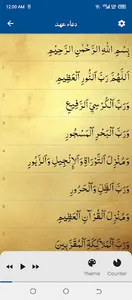 12:00 AM
دعاء عهد
بِسْمِ اللهِ الرَّحْمٰنِ الرَّحِيْمِ
اَللّٰهُمَّ رَبَّ النُّوْرِ الْعَظِيْمِ
وَرَبَّ الْكُرْسِيِّ الرَّفِيْعِ
وَرَبَّ الْبَحْرِ الْمَسْجُوْرِ
وَمُنْزِلَ التَّوْرَاةِ وَالْاِنْجِيْلِ وَالزَّبُوْرِ
وَرَبَّ الظِّلِّ وَالْحَرُوْرِ
وَمُنْزِلَ الْقُرْآنِ الْعَظِيْمِ
وَرَبَّ الْمَلَائِكَةِ الْمُقَرَّبِيْنَ
Theme
Counter